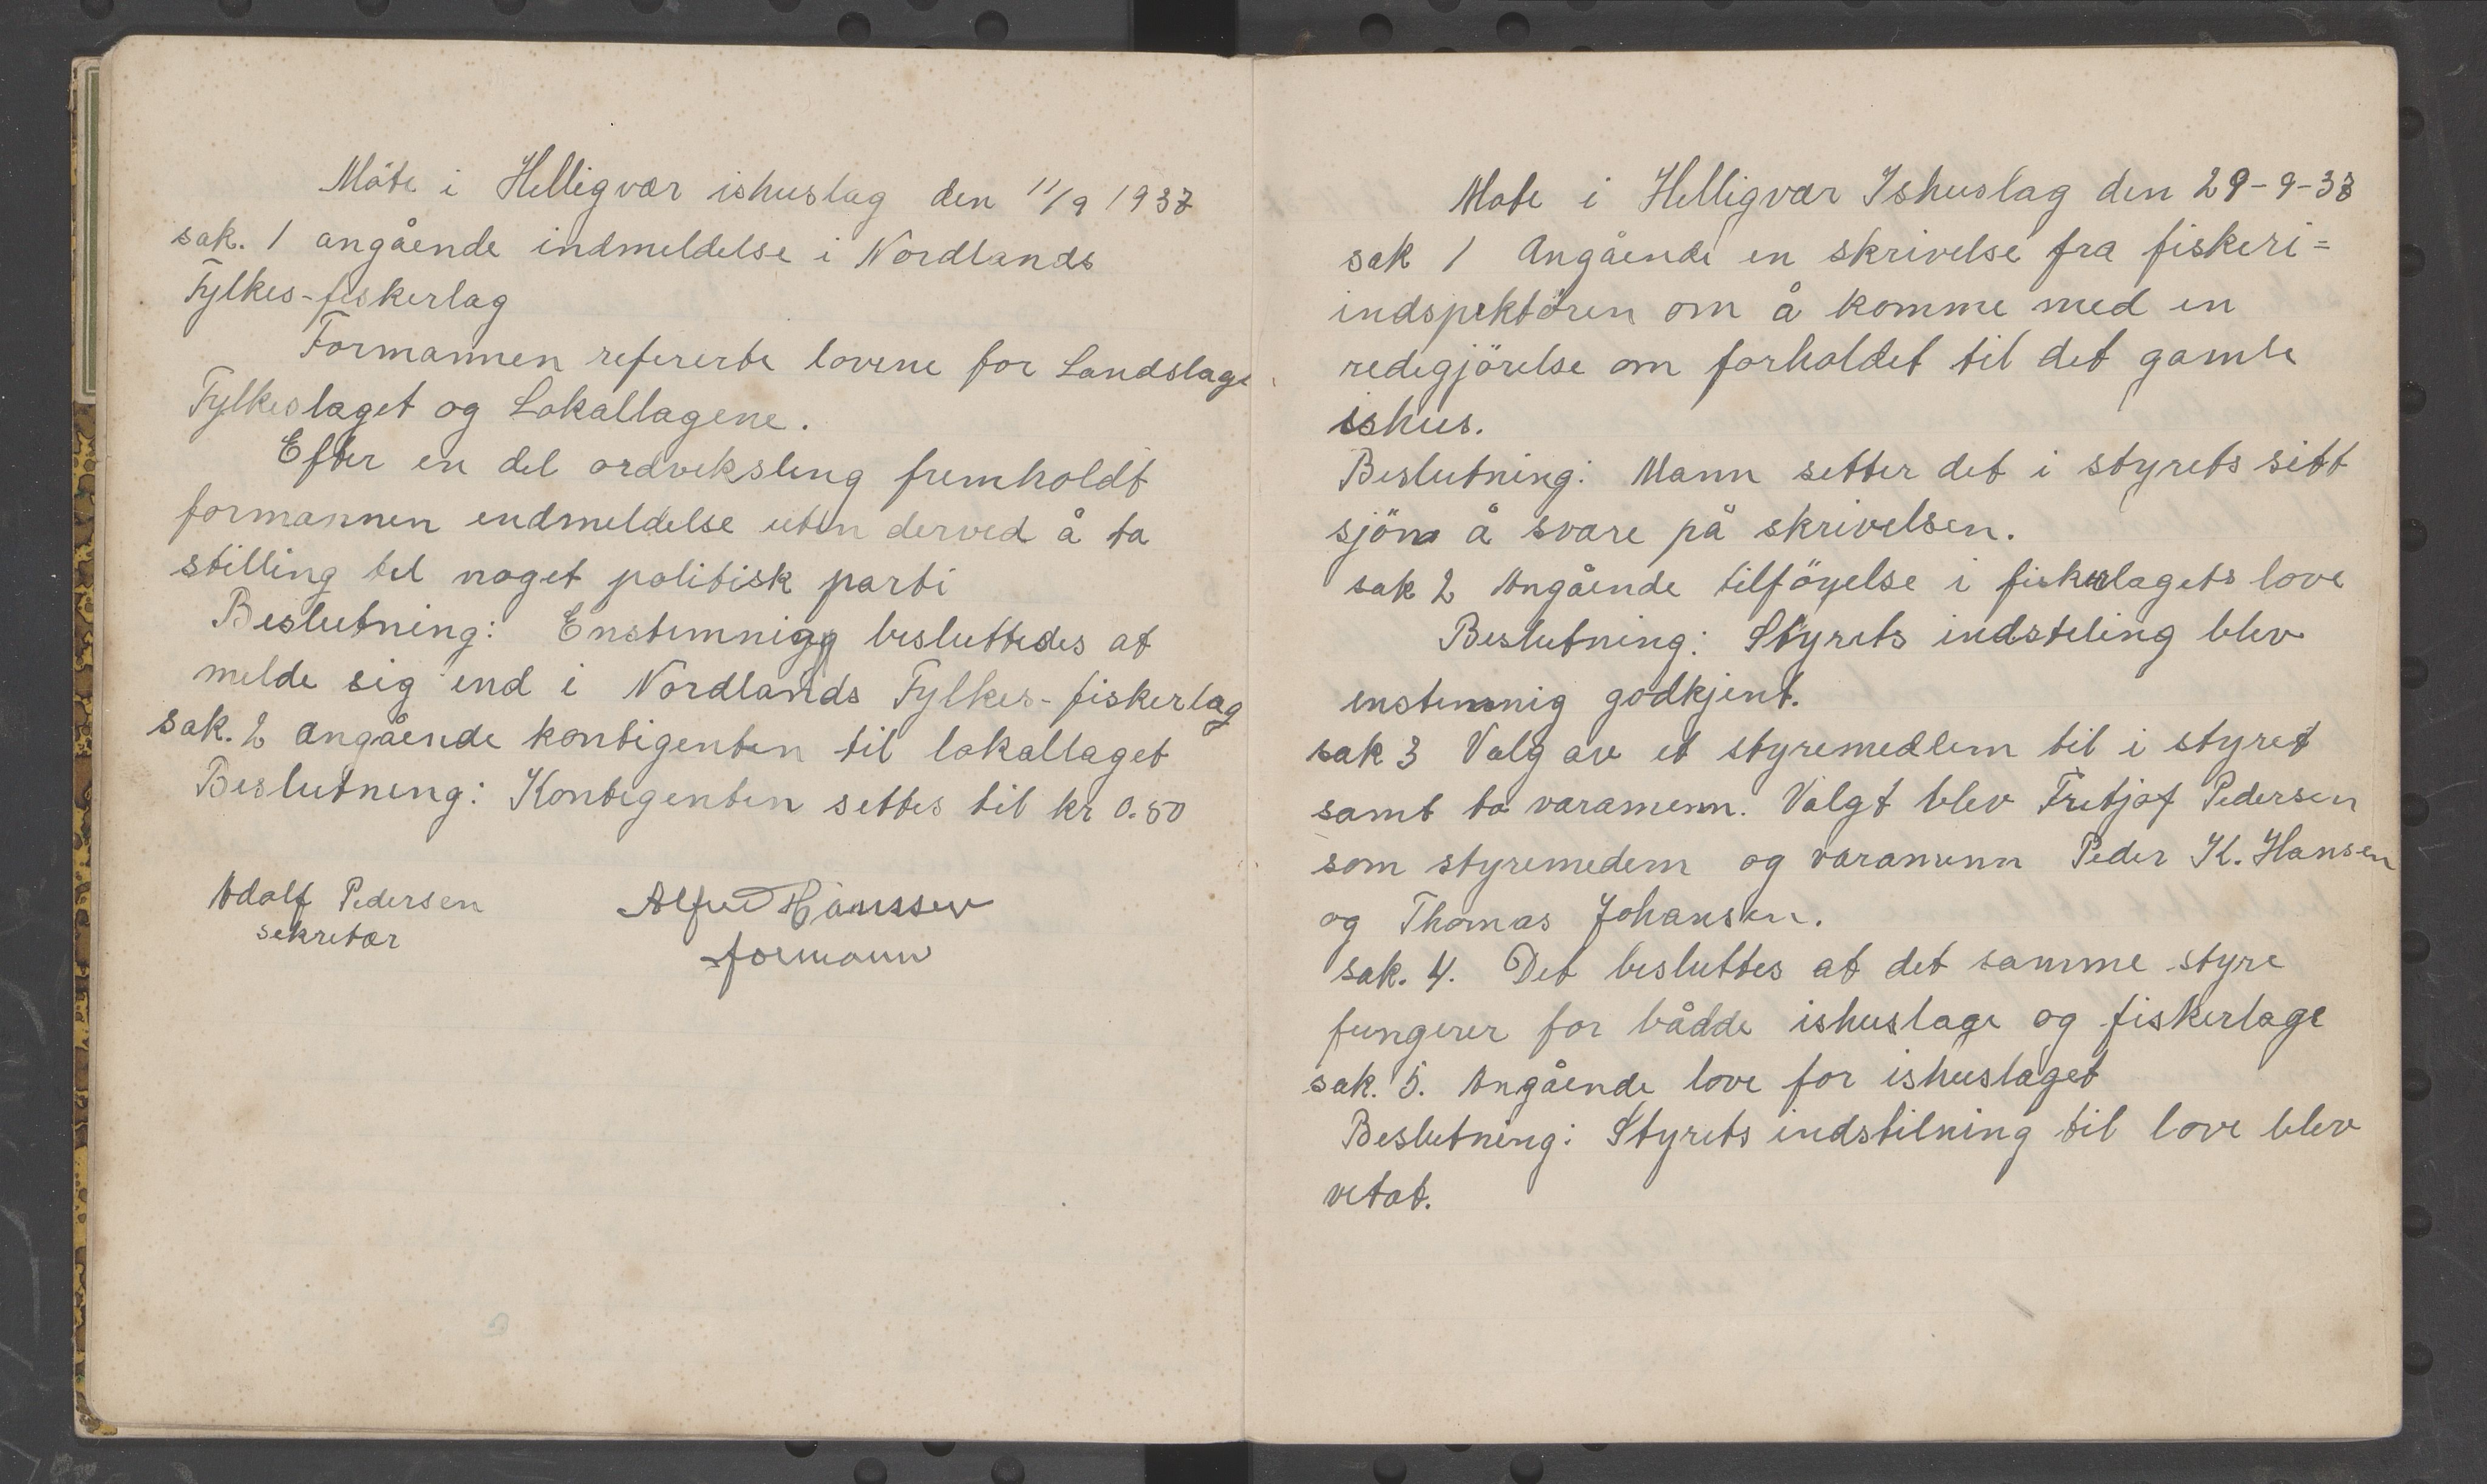 Möte i Helligvær ishuslag den 11/9 1938
sak. 1 angående indmeldelse i Nordlands
Fylkes-fiskerlag
Formannen refererte lovene for Landslage
Fylkeslaget og Lokallagene.
Efter en del ordveksling fremholdt
formannen indmeldelse uten derved å ta
stilling til noget politisk parti
Beslutning: Enstemnigg besluttedes at
melde sig ind i Nordlands Fylkes-fiskerlag
sak. 2 angående kontigenten til lokallaget
Beslutning: Kontigenten settes til kr 0.50
Adolf Pedersen
sekretær
Alfred Hanssen
formann
Möte i Helligvær Ishuslag den 29-9-38
sak 1 Angående en skrivelse fra fiskeri=
indspektören om å komme med en
redegjörelse om forholdet til det gamle
ishus.
Beslutning: Mann setter det i styrets sitt
sjönn å svare på skrivelsen.
sak 2 Angående tilföyelse i fiskerlagets love
Beslutning: Styrets indsteling blev
enstemnig godkjent.
sak 3 Valg av et styremedlem til i styret
samt to varamenn. Valgt blev Fretjof Pedersen
som styremedem og varamenn Peder K. Hansen
og Thomas Johansen.
sak. 4. Det besluttes at det samme styre
fungerer for bådde ishuslage og fiskerlage
sak. 5. Angående love for ishuslaget
Beslutning: Styrets indstilning til love blev
vetat.